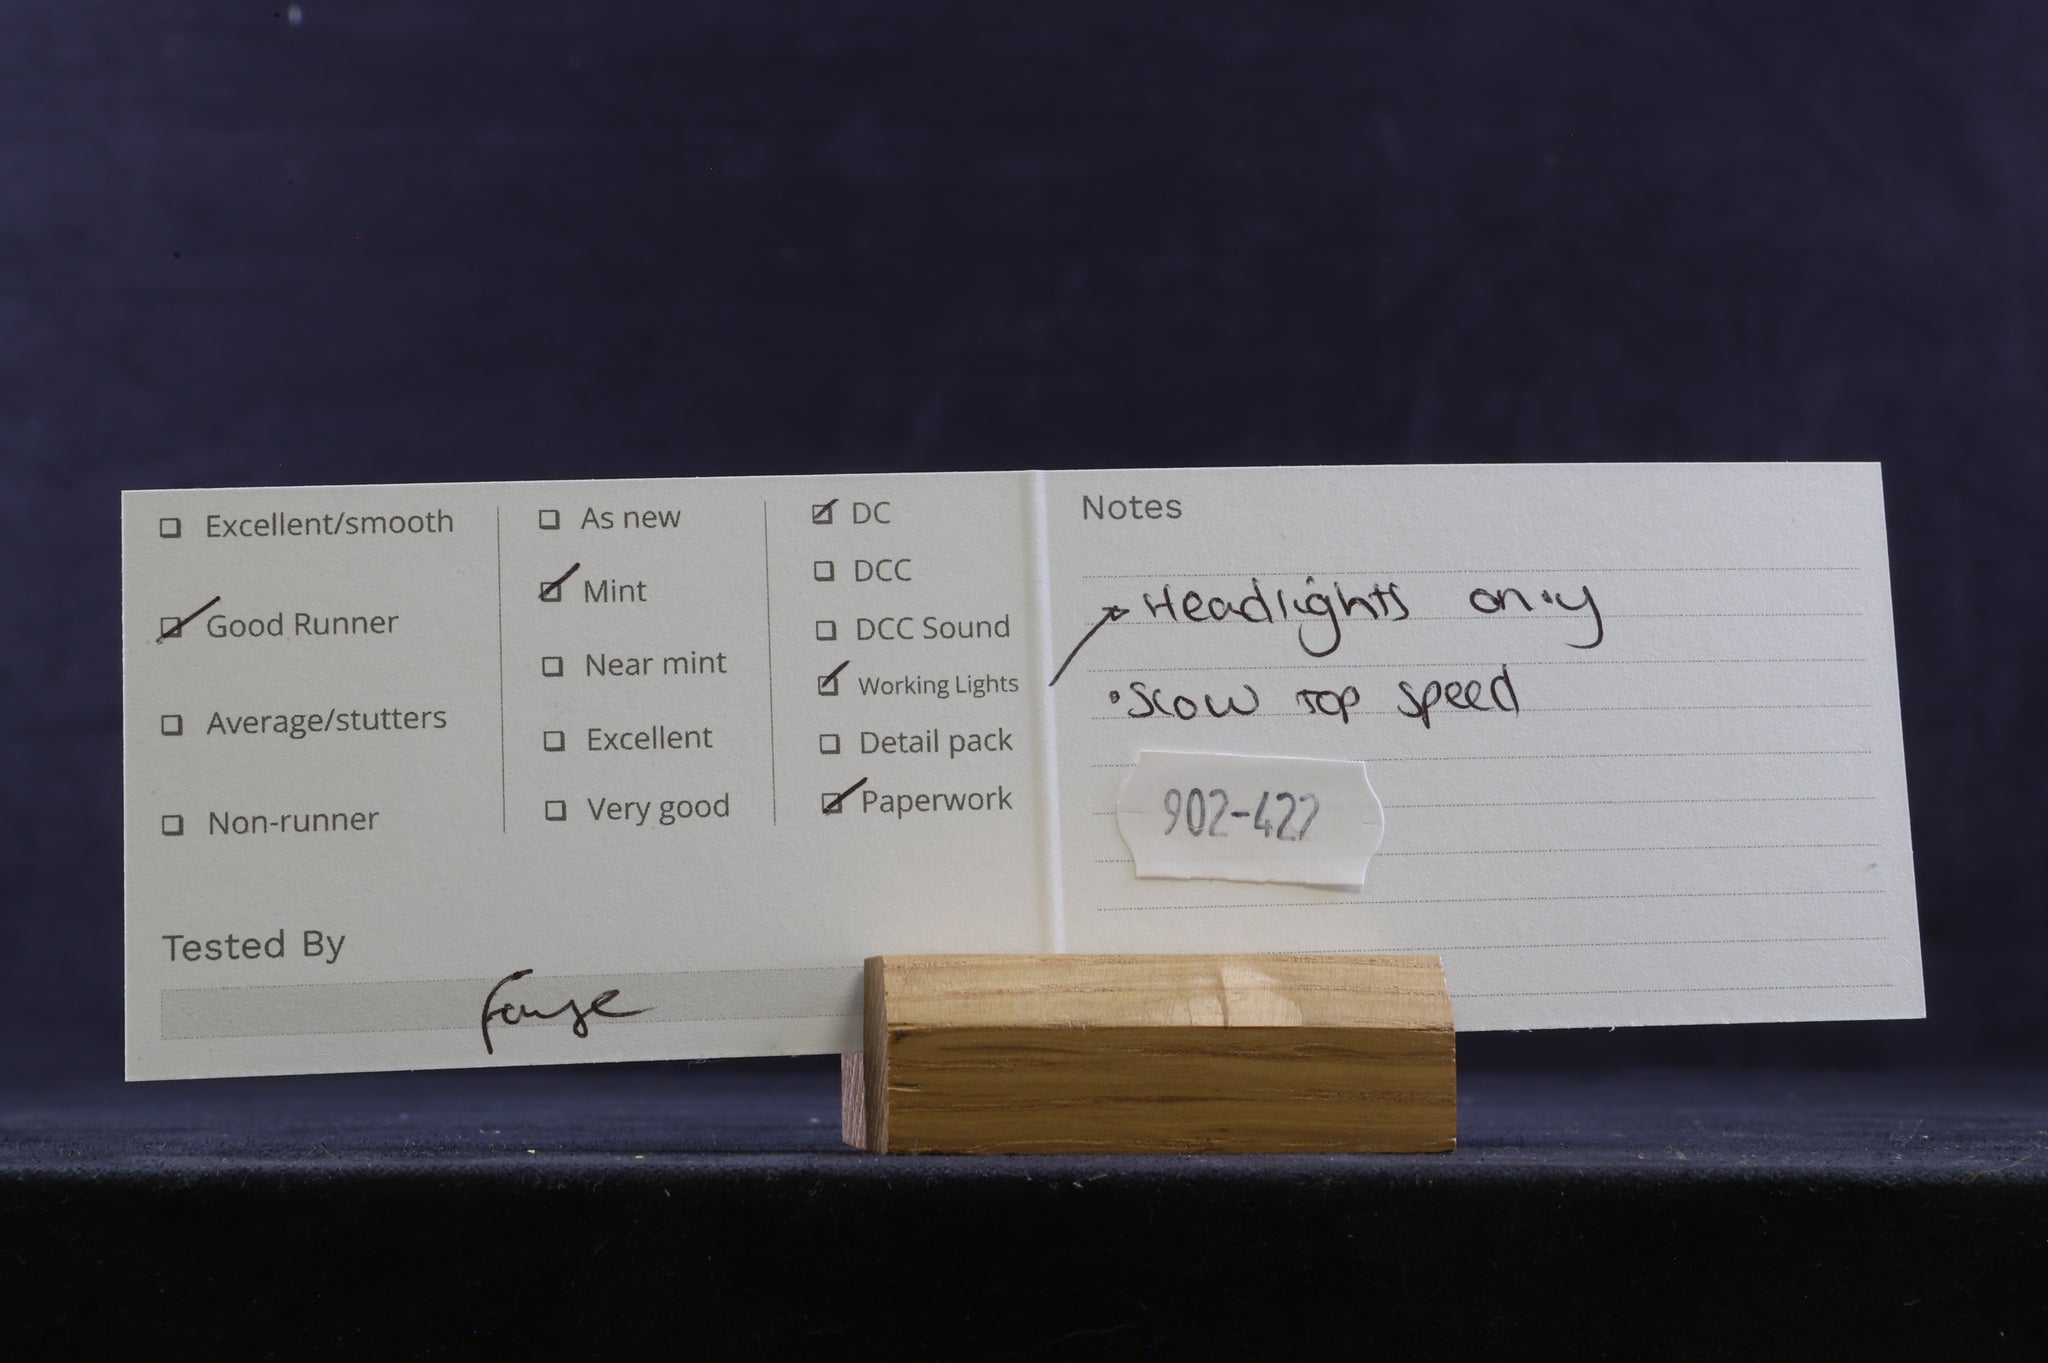 Excellent/smooth
Good Runner
Average/stutters
Non-runner
As new
Mint
Near mint
Excellent
Very good
DC
DCC
DCC Sound
Working Lights
Detail pack
Paperwork
Tested By
Notes
Headlights only
• Slow top speed
902-422